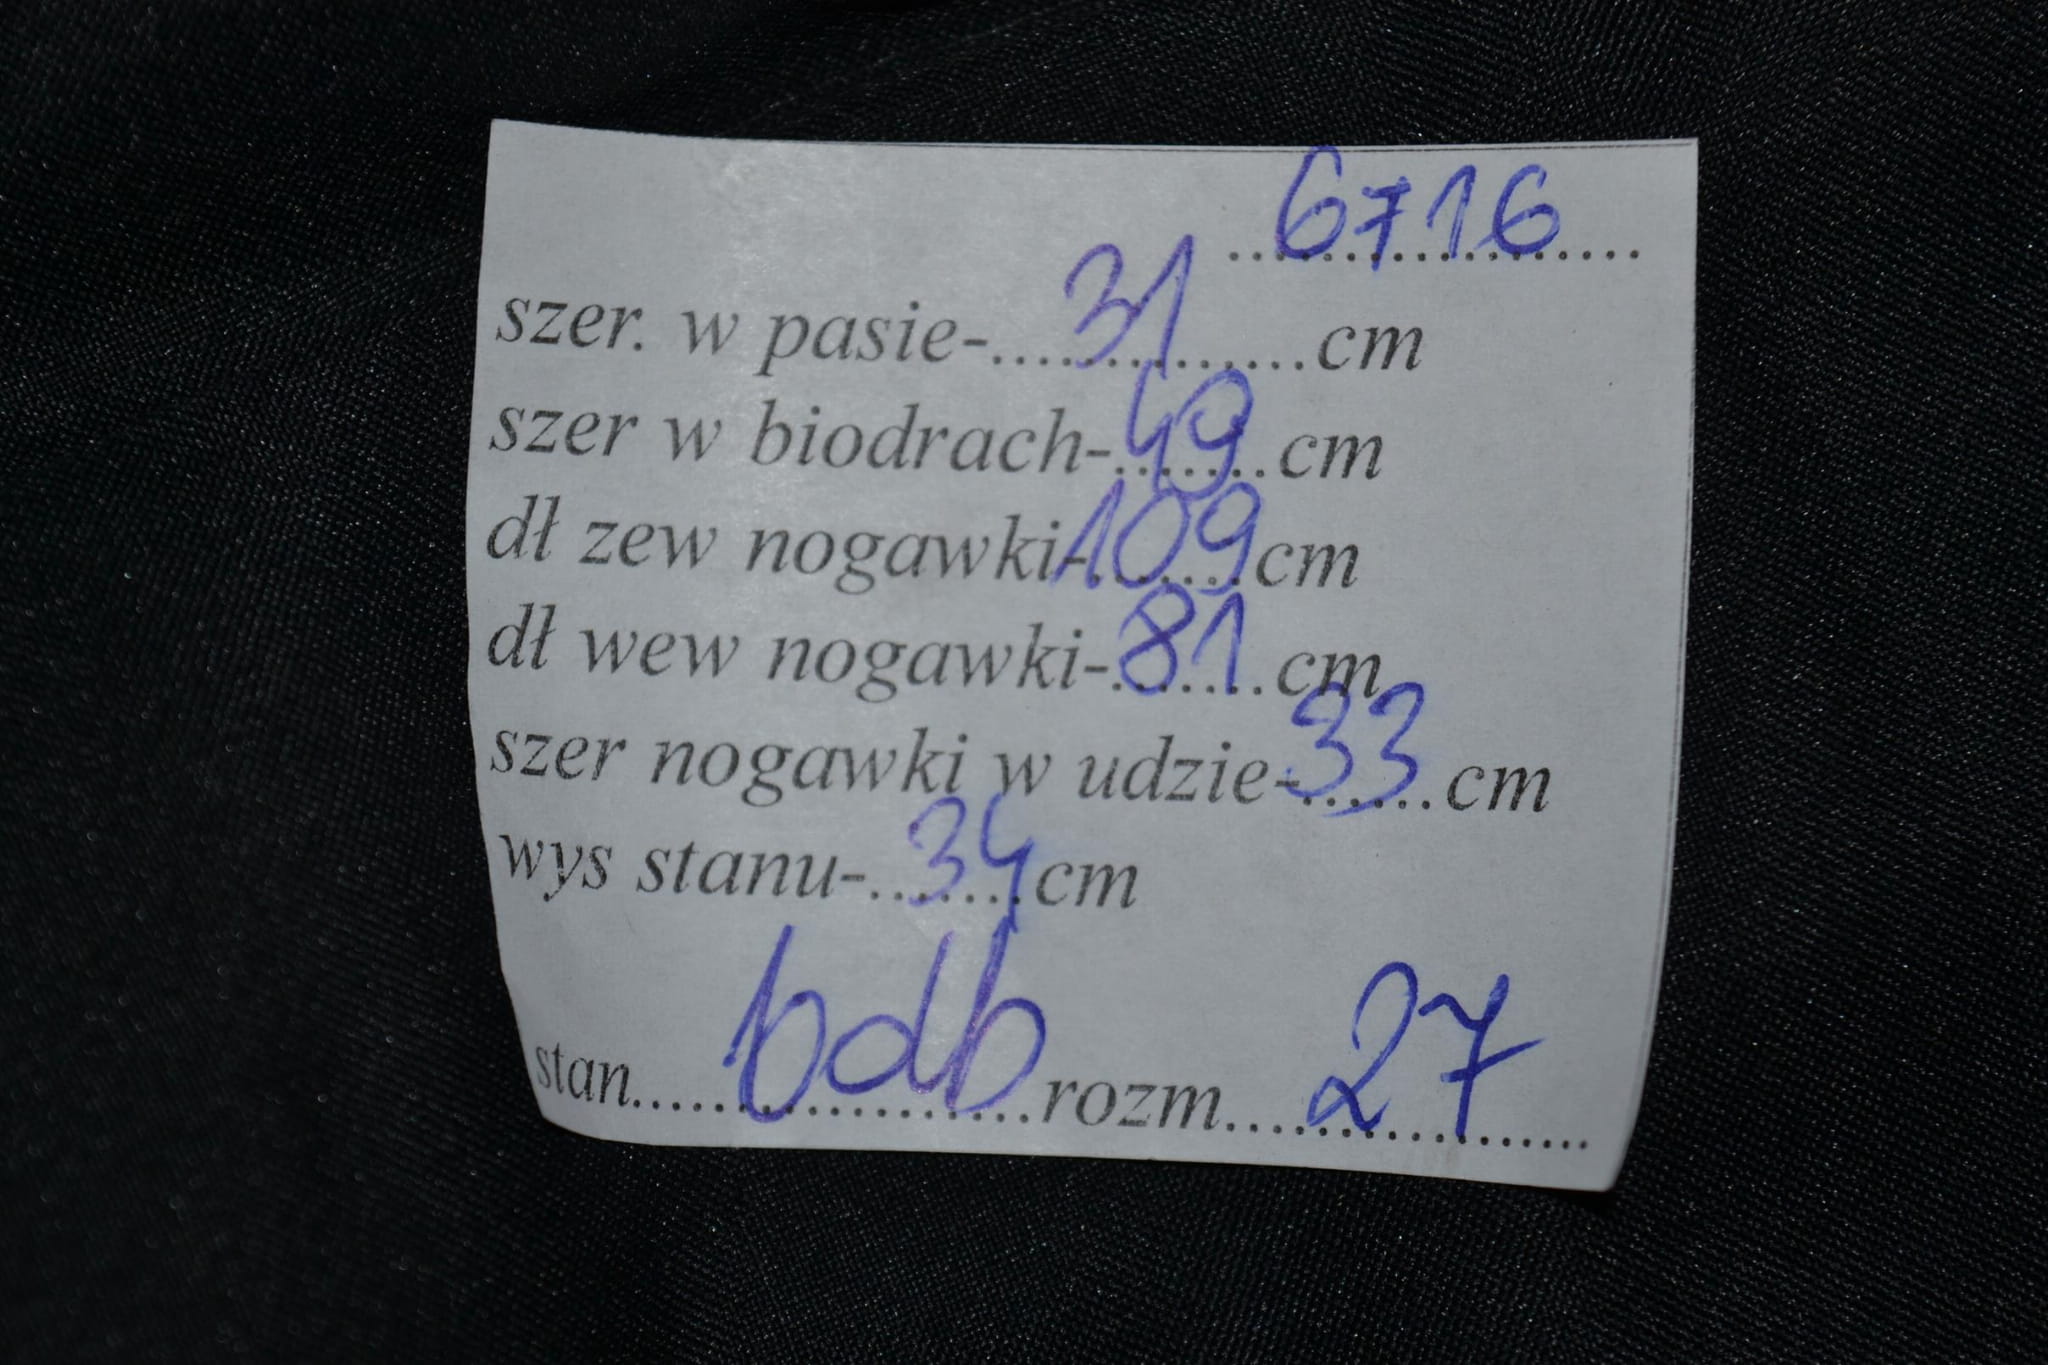 ..6716.......
szer. w pasie-....31......cm
szer w biodrach-.49..cm
dł zew nogawki-109cm
dł wew nogawki-.81..cm
szer nogawki w udzie-33...cm
wys stanu-..34.cm
stan....bdb....rozm....27.......